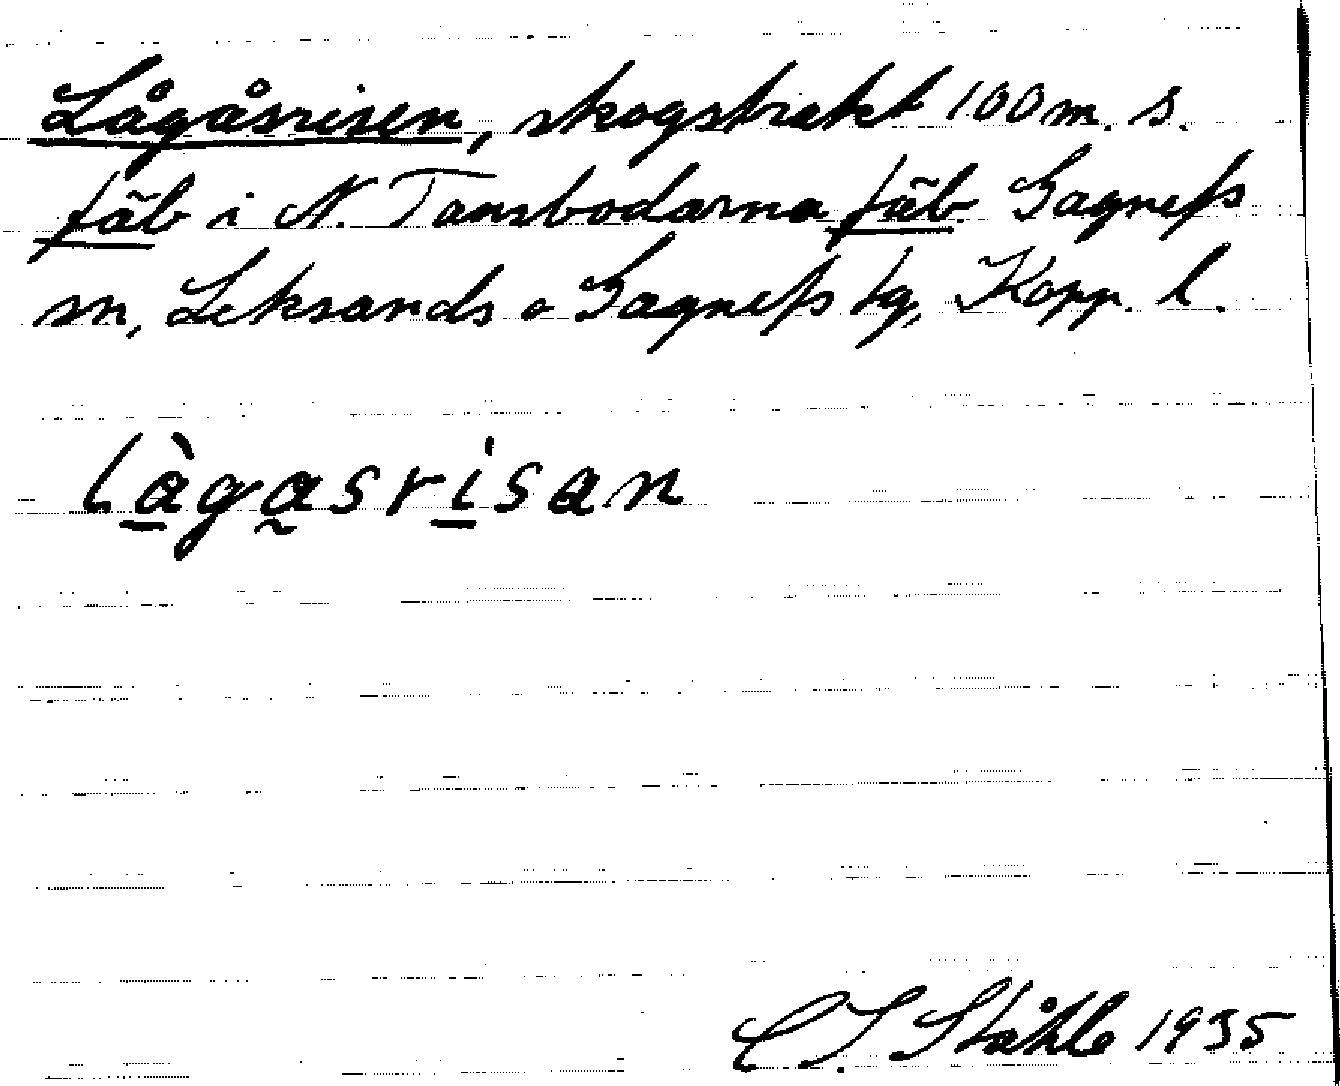 Lågåsrisen, skogstrakt 100 m. S.
fäb i N. Tansbodarna fäb. Gagnefs
sn, Leksands o Gagnefs tg, Kopp. l.
làgasrisan
C I Ståhle 1935